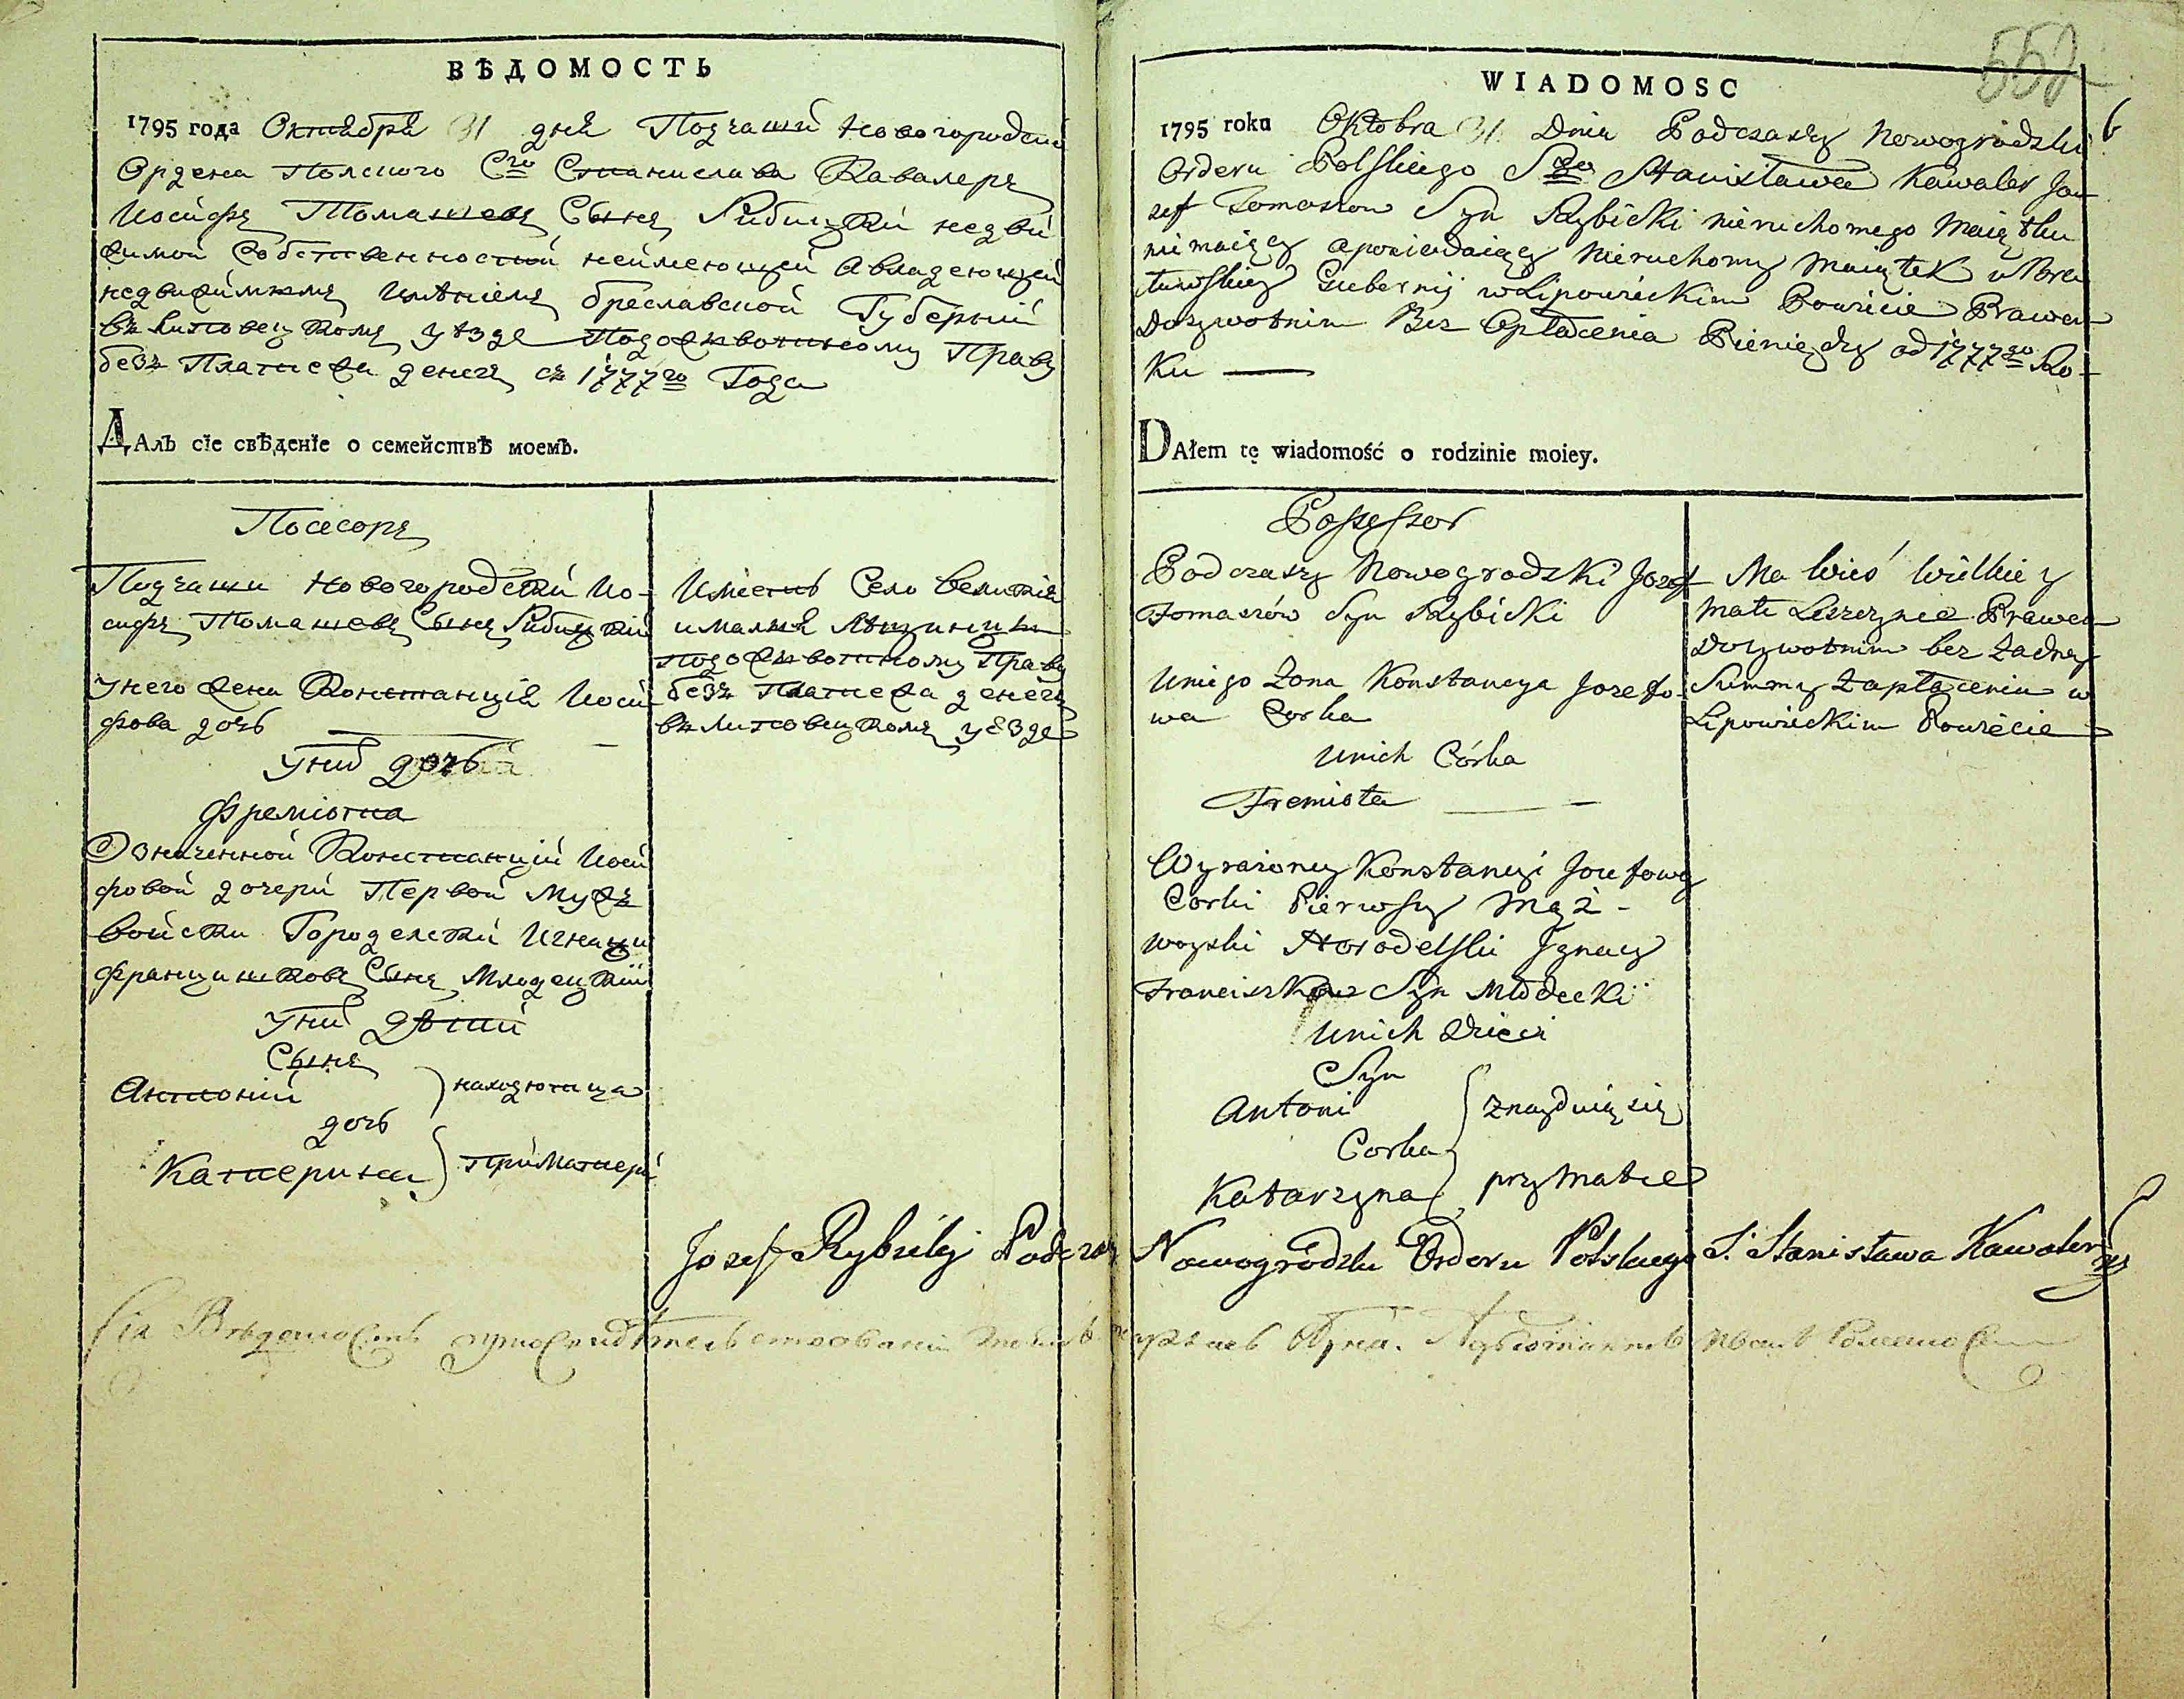 ВѢДОМОСТЬ
1795 года Октября 31 дня Подчаший Новогородски
Ордена Полского Сго Станислава Кавалеръ
Иосифъ Томашевъ Сынъ Рибицкий недви
жимой собственностий неймеющей а владеющей
недвижимымъ имѣниемъ Бреславской Губернии
въ Липовецкомъ уѣзде по дожывотному Праву
безъ Платежа денегъ съ 1777го Года
ДАлЪ сїе свѢденїе о семействѢ моемЪ.
Посесоръ
Подчаши Новогородский Ио-
сифъ Томашевъ Сынъ Рибицкий
У него жена Констанция Иоси
фова дочь
У них дочь
Фремиота
Означенной Констанций Иоси
фовой дочери Первой Мужъ
Войски Городелский Игнаци
Францишковъ Сынъ Млодецкий
У них дѣтий
Сынъ
Антоний
находютца
дочь
Катерина
при Матери
Имѣетъ Село Великия
и малыя
по дожывотному Праву
безъ Платежа денегъ
въ Липовецкомъ уѣзде
WIADOMOSC
552
6
1795 roku Oktobra 31 Dnia Podczaszy Nowogrodzki
Orderu Polskiego Sgo Stanisława Kawaler Jo
zef Tomaszow Syn Rybicki nieruchomego Maiątku
nie maiący a posiadaiący Nieruchomy Maiątek w Bra
cławskiey Gubernij w Lipowieckim Powiecie Prawem
Dożywotnim Bez Opłacenia Pieniędzy od 1777go Ro-
ku
DAłem tę wiadomość o rodzinie moiey.
Possessor
Podczaszy Nowogrodzki Jozef
Tomaszów Syn Rybicki
U niego Żona Konstancya Jozefo-
wa Corka
U nich Córka
Fremiota
Wyrażoney Konstancyi Jozefowy
Corki Pierwszy Mąż -
Woyski Horodelski Jgnacy
Franciszkow Syn Młodecki
U nich Dzieci
Syn
Antoni
znayduią się
Corka
Katarzyna
przy Matce
Ma Wieś Wielkie y
małe Leszczynce Prawem
Dożywotnim bez żadney
Summy Zapłacenia w
Lipowieckim Powiecie
Jozef Rybicki Podczaszy Nowogródzki Orderu Polskiego S. Stanisława Kawaler
Сія Вѣдомость